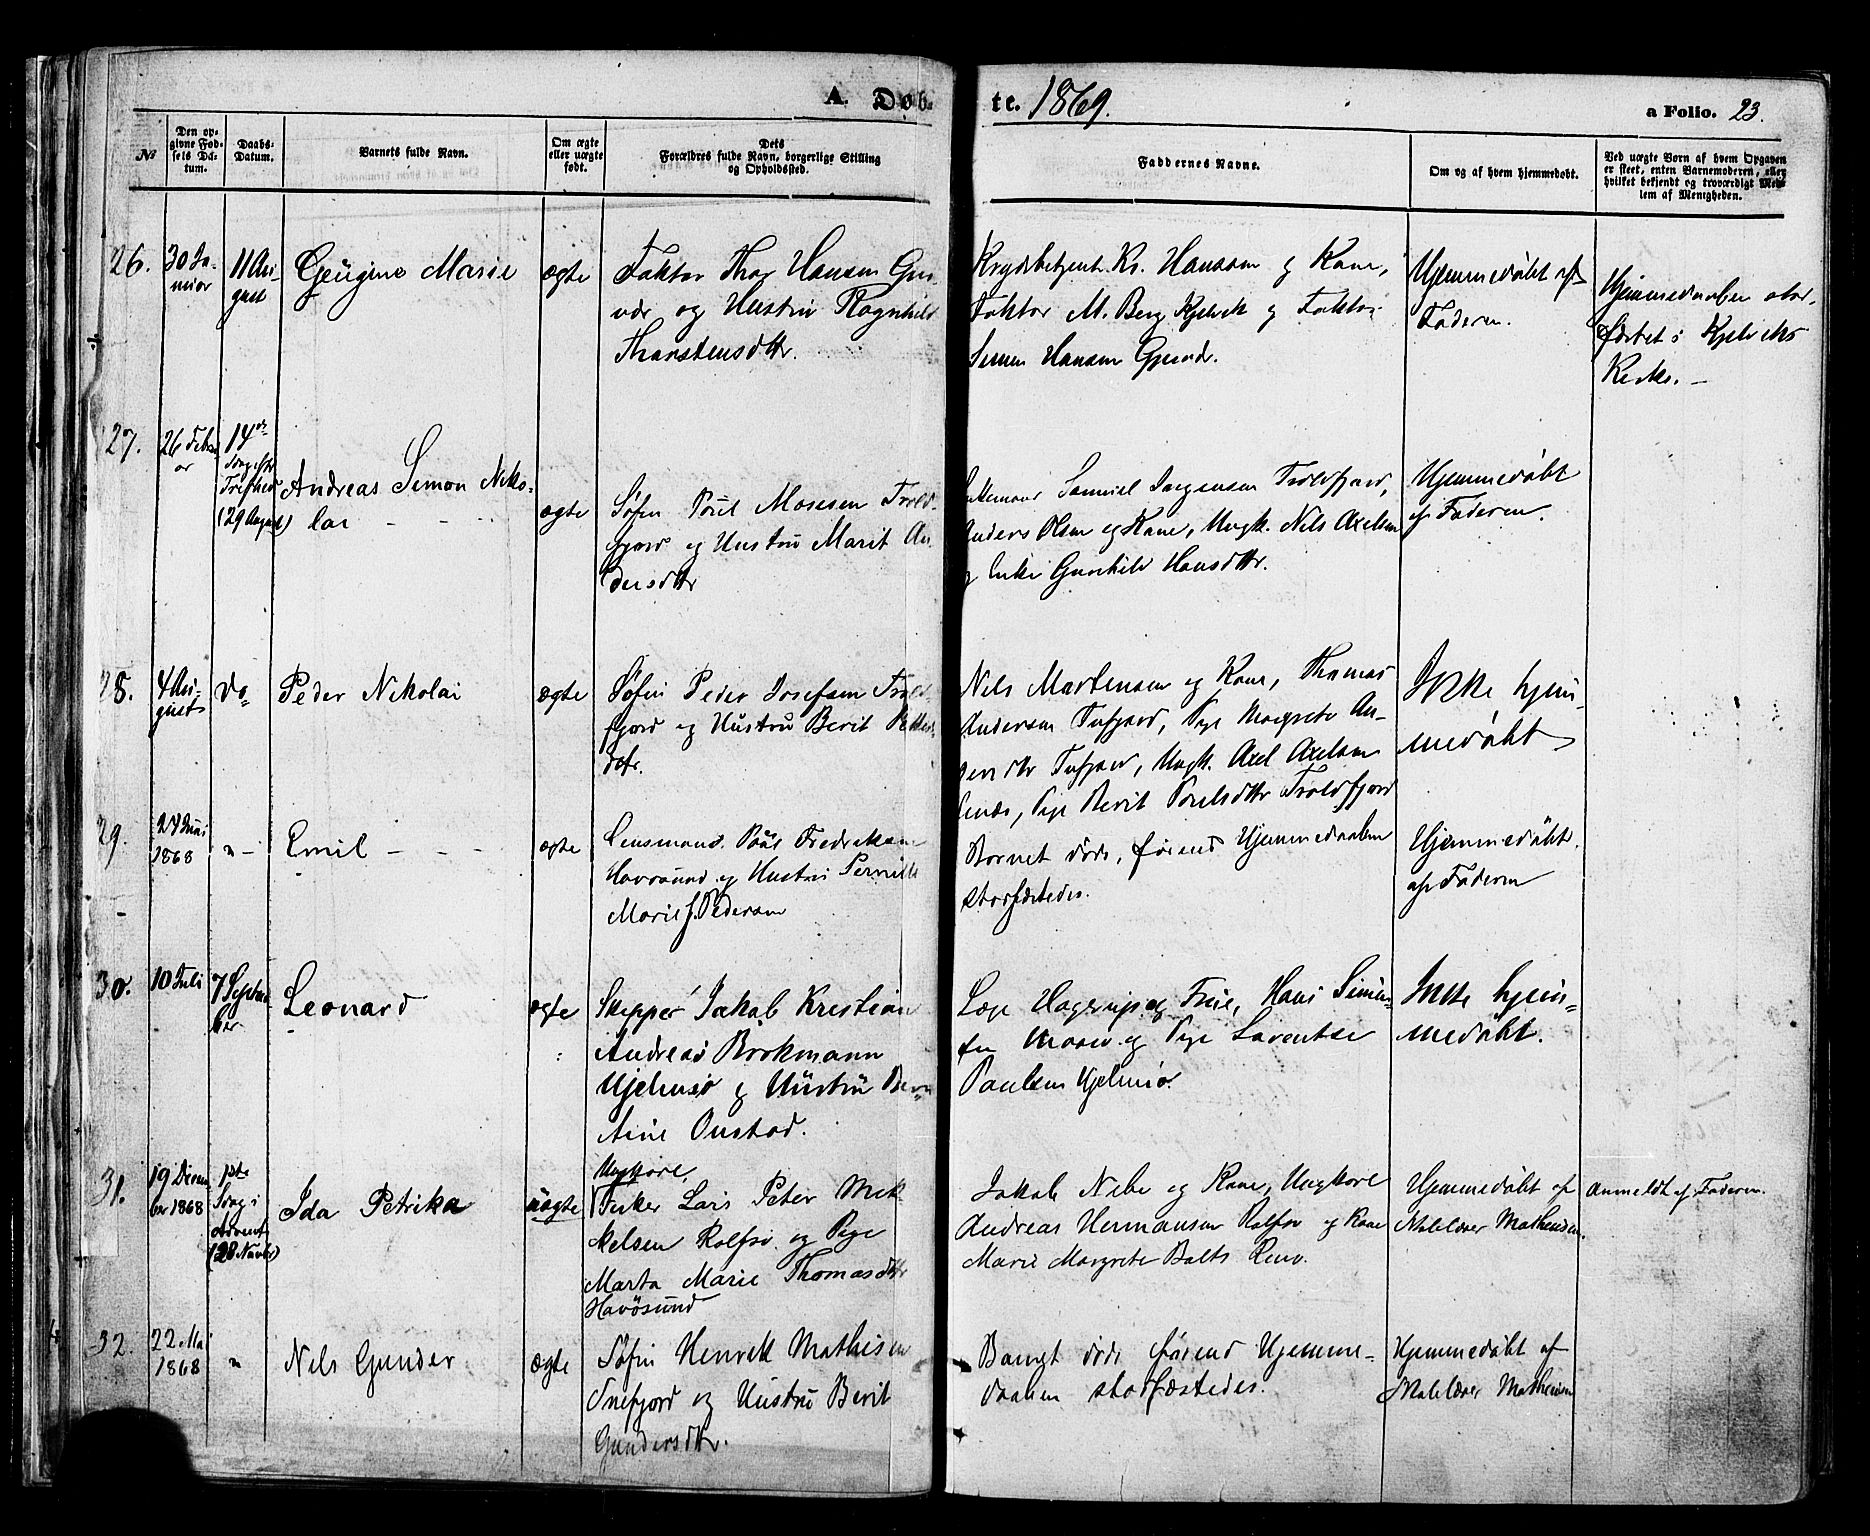 A. Døb-
te. 1869.
a Folio. 23.
№
Den op-
givne Fød-
sels Da-
tum.
Daabs-
Datum.
Barnets fulde Navn.
Om ægte
eller uægte
født.
Dets
Forældres fulde Navn, borgerlige Stilling
og Opholdssted.
Faddernes Navne.
Om og af hvem hjemmedøbt.
Ved uægte Børn af hvem Opgaven
er skeet, enten Barnemoderen, eller
hvilket bekjendt og troværdigt Med-
lem af Menigheden.
26.
30 Ja-
nuar
11 Au-
gust
Marie
ægte
Faktor Thor Hansen
og Hustru Ragnhild
Thorstensdttr.
Hansen og Kone,
Faktor M. Berg Kjelvik og Faktor
Simon Hansen
Hjemmedøbt af
Faderen.
Hjemmedaaben stad-
fæstet i Kjelviks
Kirke. –
27.
26 Febru
ar
14de
Søng eftr
Trefhed
(29 August)
Andreas Simon Niko-
lai - - -
ægte
Søfin Poul Mosesen Trold-
fjord og Hustru Marit An-
dersdttr
Samuel Jørgensen Troldfjord,
Anders Olsen og Kone, Ungk. Nils Axelsen
og Enke Gunhild Hansdttr.
Hjemmedøbt
af Faderen.
28.
4 Au-
gust
Do
Peder Nikolai
ægte
Søfin Peder Josefsen Trold
fjord og Hustru Berit Petters
dtr.
Nils Mortensen og Kone, Thomas
Andersen Tufjord, Pige Margrete An-
dersdtr Tufjord, Ungk. Axel Axelsen
Pige Berit Poulsdttr Troldfjord
Ikke hjem-
medøbt
29.
1868
" -
Emil - - -
ægte
Lensmand. Paal Fredriksen
Havøsund og Hustru Pernille
Marie f. Pedersen
Barnet døde, førend Hjemmedaaben
stadfæstedes.
Hjemmedøbt
af Faderen
30.
10 Juli
7 Septem
ber
Leonard
ægte
Skipper Jakob Kristian
Andreas Brokmann
Hjelmsø og Hustru
Onstad.
Læge Hagerup og Frue, Hans Simon-
sen og Pige Laventse
Paulsen Hjelmsø.
Ikke hjem-
medøbt.
31.
19 Decem
ber 1868
1ste
Søng i
Advent
(28 Novbr)
Ida Petrika
uægte
Ungkarl,
Fisker Lars Peter Mik
kelsen Rolfsø og Pige
Marta Marie Thomasdttr
Havøsund
Jakob Nebe og Kone, Ungkarl
Andreas Hermansen Rolfsø og Kone
Marie Margrete Balts
Hjemmedøbt af
Skolelærer Mathiesen.
Anmeldt af Faderen.
32.
22 Mai
1868
"
Nils Gunder
ægte
Søfin Henrik Mathisen
Snefjord og Hustru Berit
Gundersdttr.
Barnet døde førend Hjemme-
daaben stadfæstedes.
Hjemmedøbt af
Skolelærer Mathiesen